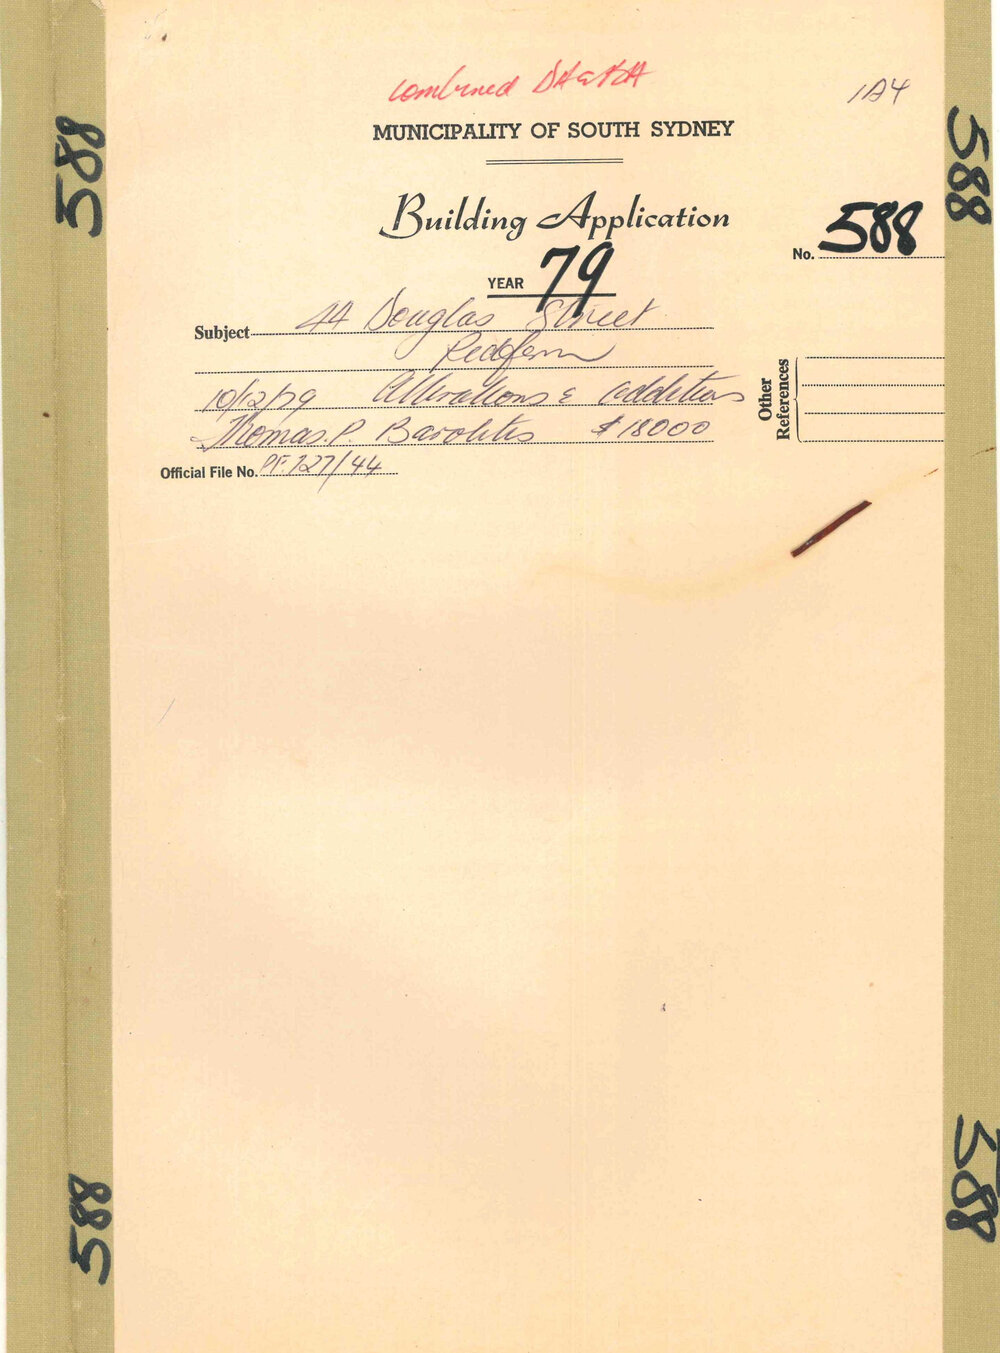 combined DA & BA
1A4
MUNICIPALITY OF SOUTH SYDNEY
Building Application
No. 588
YEAR 79
Subject 44 Douglas Street
Redfern
10/12/79 Alterations & additions
Thomas. P. $18000
Other References
Official File No. PF. 727/44
588
588
588
588